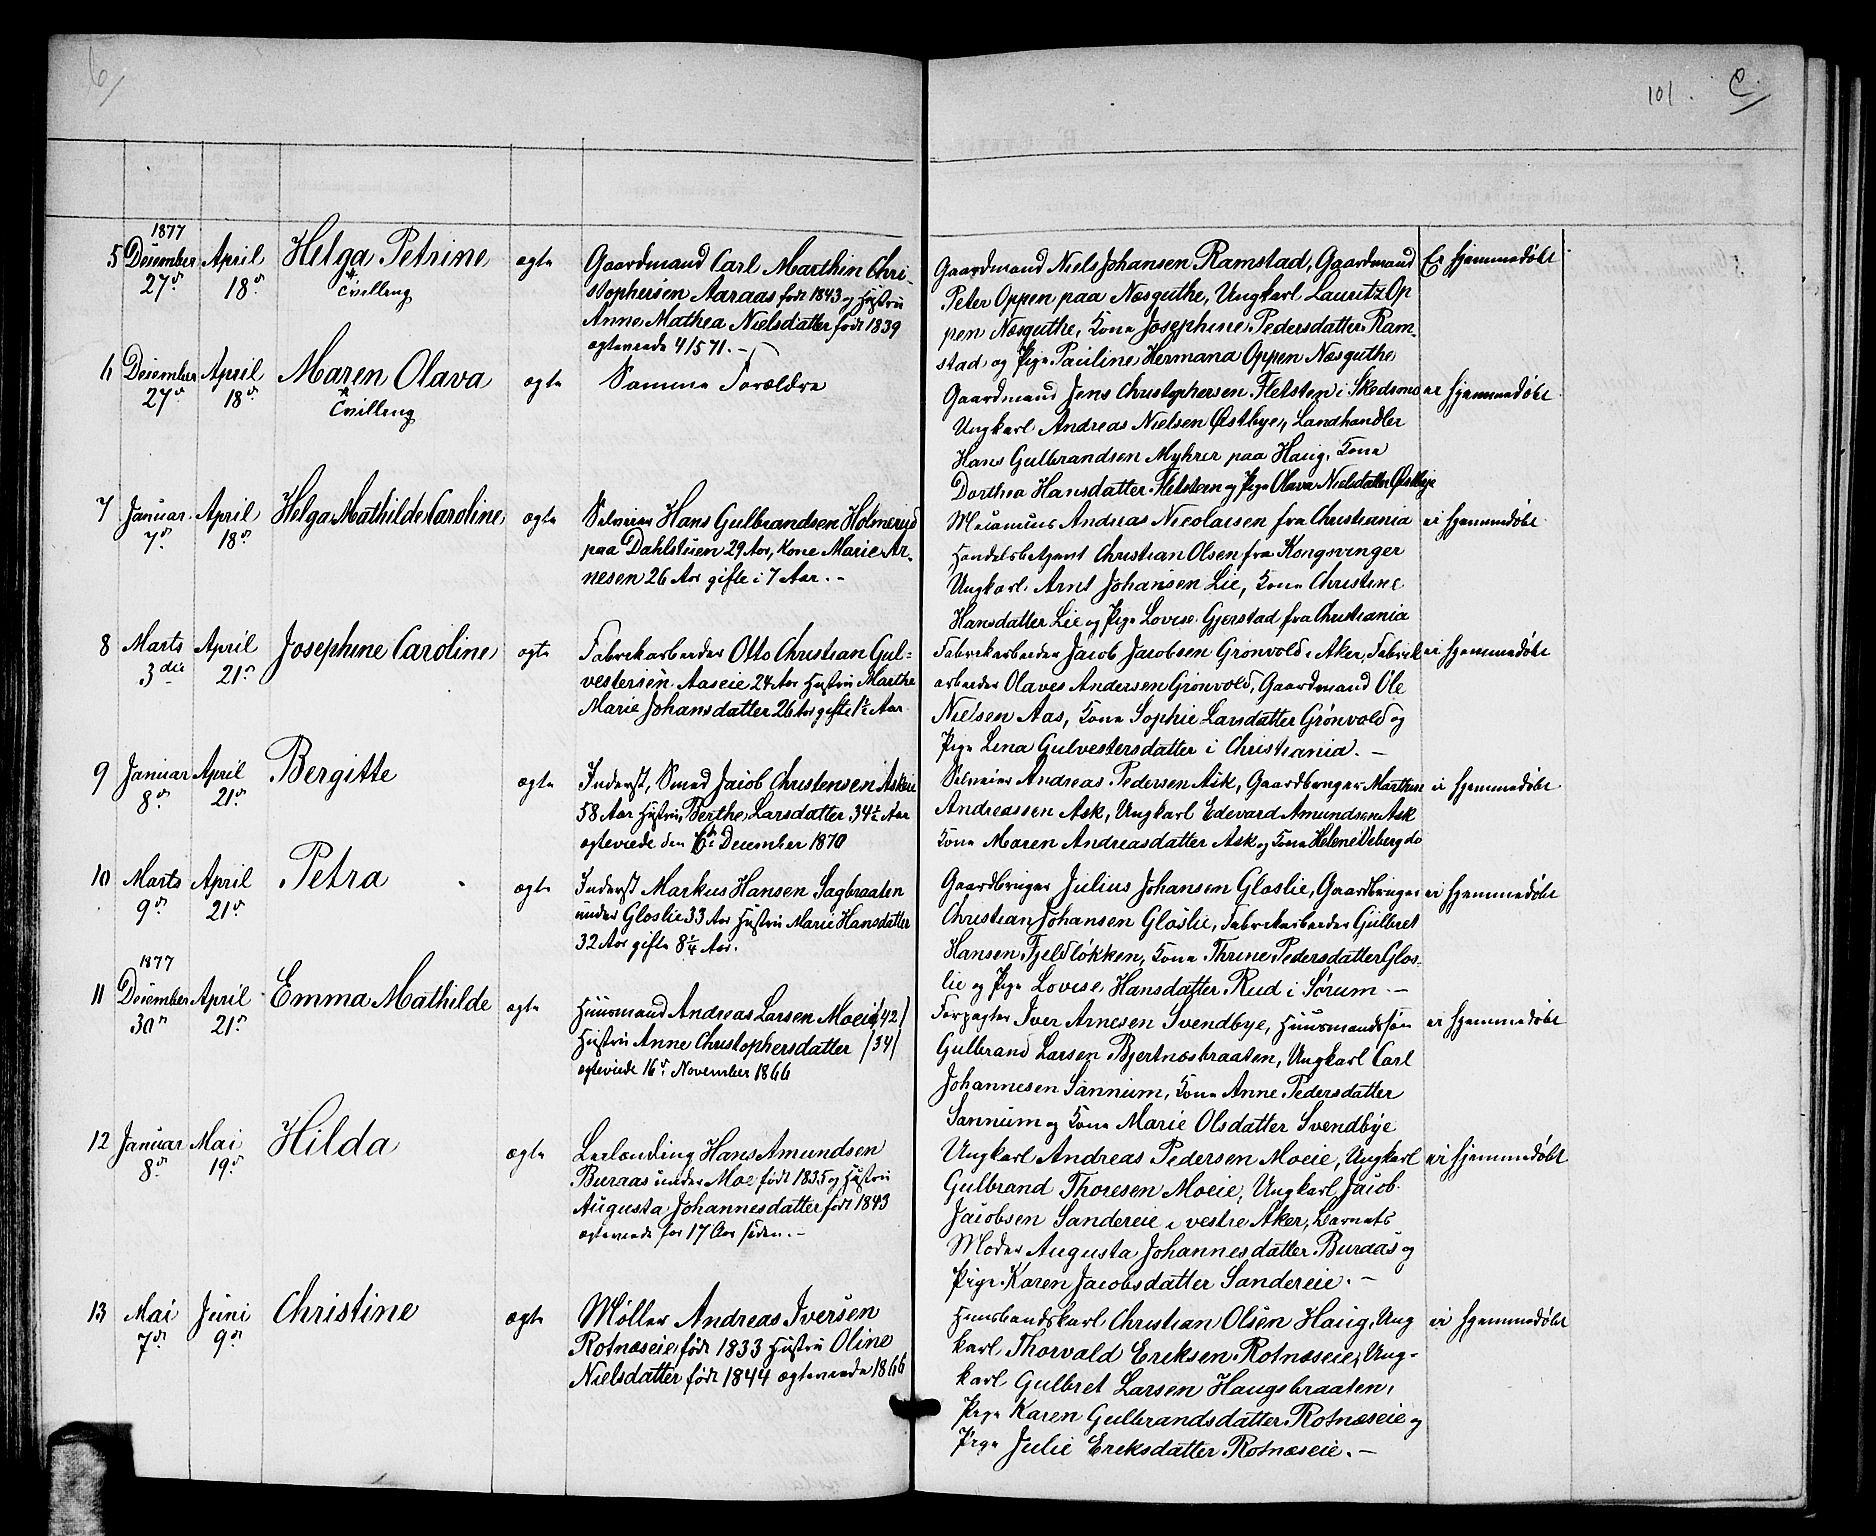 6
101. C.
1877
5 December 27de April 18de Helga Petrine Tvilling ægte
Gaardmand Carl Marthin Chri-
stophersen Aaraas født 1843 og Hustru
Anne Mathea Nielsdatter født 1839
ægteviede 4/5 71. -
Gaardmand Niels Johansen Ramstad, Gaardmand
Peter Oppen paa Næsguthe, Ungkarl Lauritz Op
pen Næsguthe, Kone Josephine Pedersdatter Ram-
stad og Pige Pauline Hermana Oppen Næsguthe
Er hjemmedøbt
6 December 27de April 18de Maren Olava Tvilling ægte
Samme Forældre
Gaardmand Jens Christophersen Fletsten i Skedsmo
Ungkarl Andreas Nielsen Østbye, Landhandler
Hans Gulbrandsen Myhrer paa Haug, Kone
Dorthea Hansdatter Fletsteen og Pige Olava Nielsdatter Østbye
er hjemmedøbt
7 Januar 7de April 18de Helga Mathilde Caroline ægte
Selveier Hans Gulbrandsen Holmeryd
paa Dahlstuen 29 Aar, Kone Marie Ar-
nesen 26 Aar gifte i 7 Aar. -
Mecanicus Andreas Nicolaisen fra Christiania
Handelsbetjent Christian Olsen fra Kongsvinger
Ungkarl Arnt Johansen Lie, Kone Christine
Hansdatter Lie og Pige Lovise Gjerstad fra Christiania
ei hjemmedøbt
8 Marts 3die April 21de Josephine Caroline ægte
Fabrikarbeider Otto Christian Gul-
vestersen Aaseie 24 Aar Hustru Marthe
Marie Johansdatter 26 Aar gifte 1½ Aar
Fabrikarbeider Jacob Jacobsen Grønvold i Aker, Fabrik
arbeider Olaves Andersen Grønvold, Gaardmand Ole
Nielsen Aas, Kone Sophie Larsdatter Grønvold og
Pige Lina Gulvestersdatter i Christiania. -
ei hjemmedøbt
9 Januar 8de April 21de Bergitte ægte
Inderst, Smed Jacob Christensen Askeie
58 Aar Hustru, Berthe Larsdatter 34½ Aar
ægteviede den 6te December 1870
Selveier Andreas Pedersen Ask, Gaardbruger Marthin
Andreassen Ask, Ungkarl Edevard Amundsen Ask
Kone Maren Andreasdatter Ask og Kone Helene Veberg do
ei hjemmedøbt
10 Marts 9de April 21de Petra ægte
Inderst Markus Hansen Sagbraaten
under Gloslie 33 Aar Hustru Marie Hansdatter
32 Aar gifte 8¼ Aar.
Gaardbruger Julius Johansen Gloslie, Gaardbruger
Christian Johansen Gloslie, Fabrikarbeider Gulbret
Hansen Fjeldløkken, Kone Thrine Pedersdatter Glos-
lie og Pige Lovise Hansdatter Rud i Sørum. -
ei hjemmedøbt
1877
11 December 30de April 21de Emma Mathilde ægte
Huusmand Andreas Larsen Moeie /42/
Hustru Anne Christophersdatter /34/
ægteviede 16de November 1866
Forpagter Iver Arnesen Svendbye, Huusmandssøn
Gulbrand Larsen Bjertnæsbraaten, Ungkarl Carl
Johannesen Sannum, Kone Anne Pedersdatter
Sannum og Kone Marie Olsdatter Svendbye
er hjemmedøbt
12 Januar 8de Mai 19de Hilda ægte
Leilending Hans Amundsen
Buraas under Moe født 1835 og Hustru
Augusta Johannesdatter født 1843
ægteviede for 17 Aar siden. -
Ungkarl Andreas Pedersen Moeie, Ungkarl
Gulbrand Thoresen Moeie, Ungkarl Jacob
Jacobsen Sandereie i vestre Aker, Barnets
Moder Augusta Johannesdatter Buraas og
Pige Karen Jacobsdatter Sandereie. -
ei hjemmedøbt
13 Mai 7de Juni 9de Christine ægte
Møller Andreas Iversen
Rotnæseie født 1833 Hustru Oline
Nielsdatter født 1844 ægteviede 1866
Huusbondskarl Christian Olsen Haug, Ung
karl Thorvald Eriksen Rotnæseie, Ung-
karl Gulbret Larsen Haugsbraaten,
Pige Karen Gulbrandsdatter Rotnæseie og
Pige Julie Eriksdatter Rotnæseie. -
ei hjemmedøbt